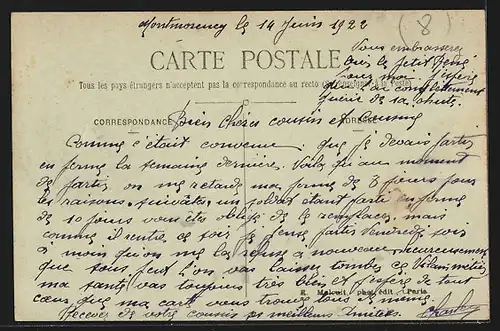 Montmorency le 14 Juin 1922
(8)
CARTE POSTALE
Tous les pays étrangers n'acceptent pas la correspondance au recto
Vous embrasserez
bien le petit
pour moi j'espère
complètement
guéri de sa chute.
CORRESPONDANCE
Bien chers cousin et cousine
Comme c'était convenu que je devais partir
en ferme la semaine dernière. Voilà qu'au moment
de partir on me retarde ma ferme de 8 jours pour
les raisons suivantes, un soldat étant parti en
de 10 jours le remplacer mais
comme il rentre ce soir je pense partir Vendredi soir
à moins qu'on me la refuse à nouveau, heureusement
que sous peu l'on va laisser tomber ce
ma santé va toujours très bien et j'espère de tout
cœur que ma carte vous trouve tous de même.
E. Malcuit, phot. édit. Paris
Recevez de votre cousin ses meilleures amitiés.
Charles